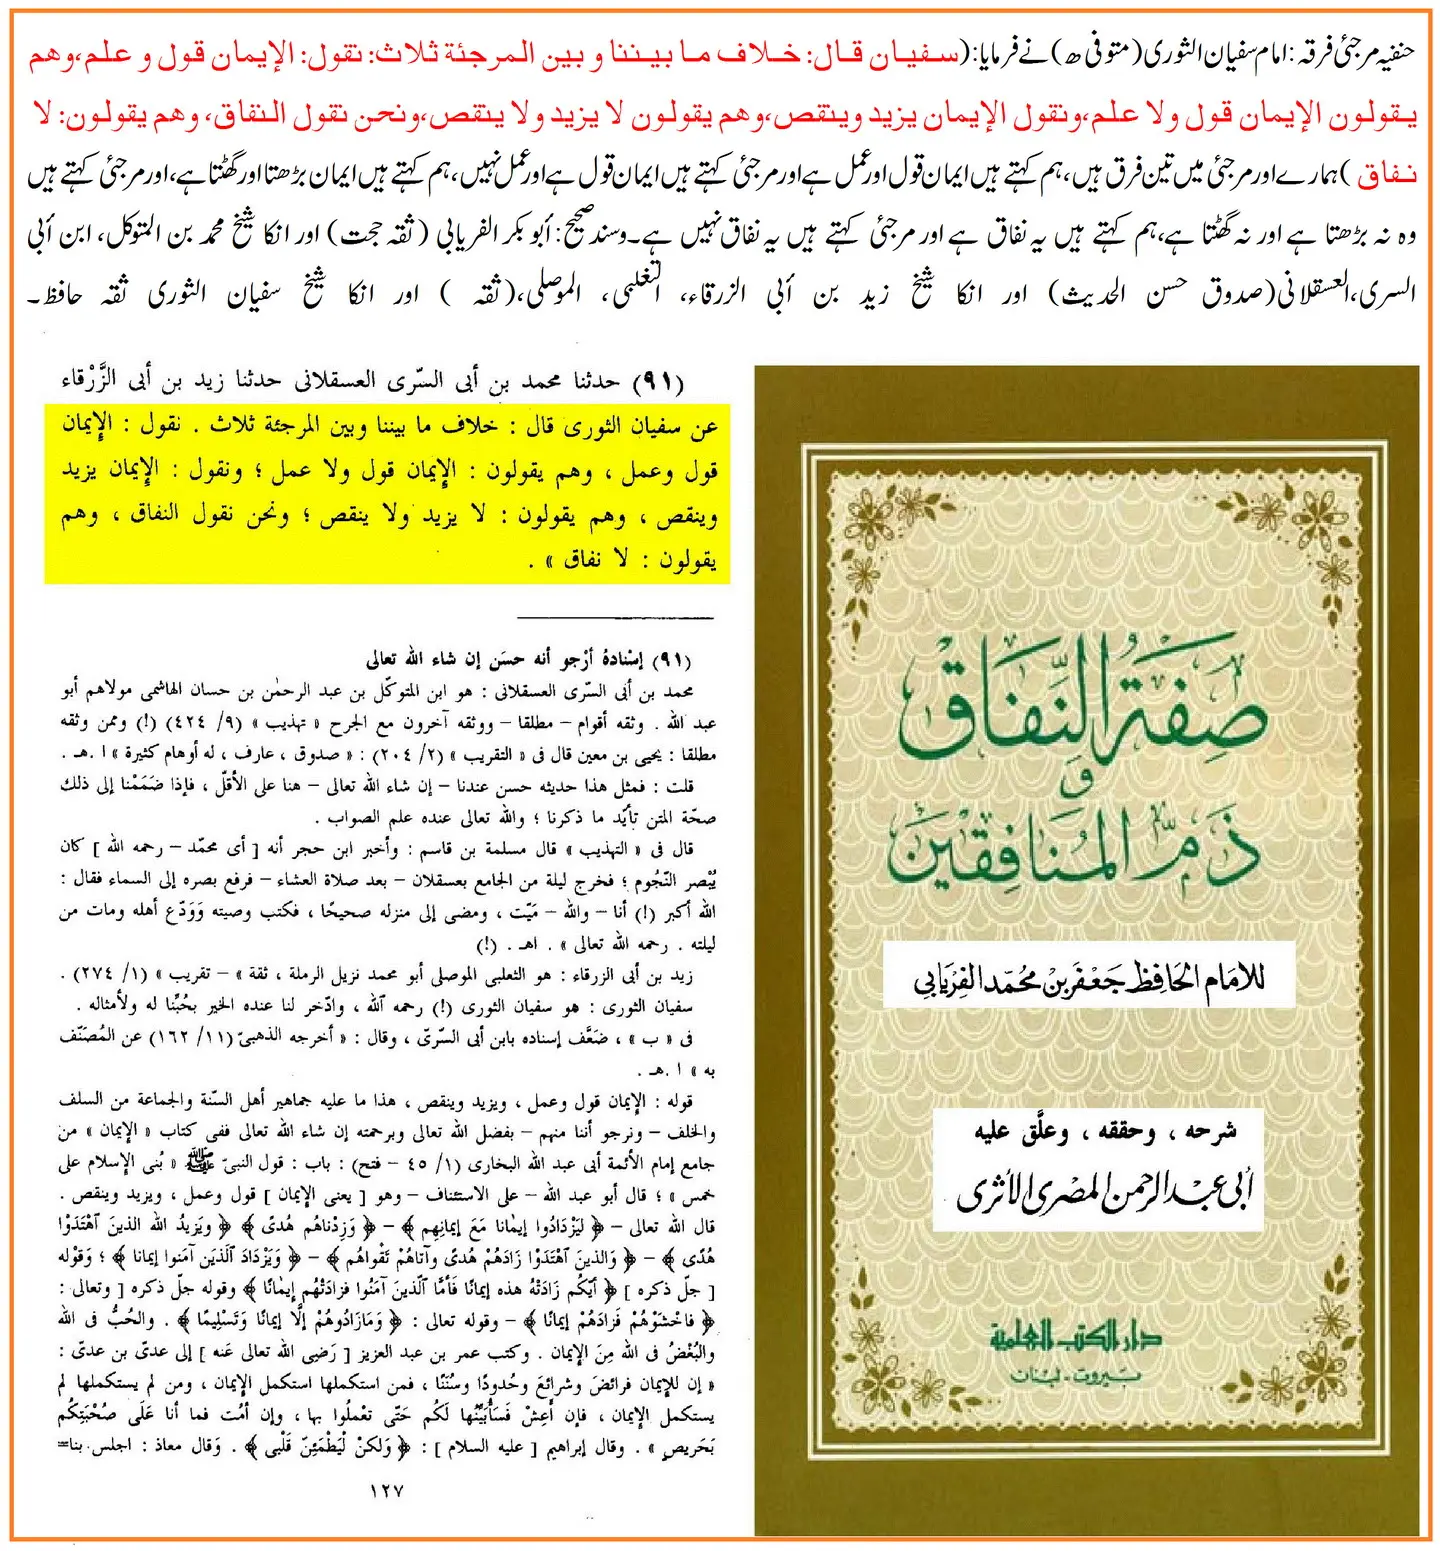 حنفیہ مرجئی فرقہ: امام سفیان الثوری (متوفی ھ) نے فرمایا: (سفيان قال: خلاف ما بيننا و بين المرجئة ثلاث: نقول: الإيمان قول و علم،وهم
يقولون الإيمان قول ولا علم،ونقول الإيمان يزيد وينقص،وهم يقولون لا يزيد ولا ينقص،ونحن نقول النفاق، وهم يقولون: لا
نفاق) ہمارے اور مرجئی میں تین فرق ہیں، ہم کہتے ہیں ایمان قول اور عمل ہے اور مرجئی کہتے ہیں ایمان قول ہے اور عمل نہیں، ہم کہتے ہیں ایمان بڑھتا اور گھٹتا ہے، اور مرجئی کہتے ہیں
وہ نہ بڑھتا ہے اور نہ گھٹتا ہے، ہم کہتے ہیں یہ نفاق ہے اور مرجئی کہتے ہیں یہ نفاق نہیں ہے۔ وسندہ صحیح: أبو بکر الفریابی (ثقہ حجت) اور انکا شیخ محمد بن المتوکل، ابن أبی
السری، العسقلانی (صدوق حسن الحدیث) اور انکا شیخ زید بن أبی الزرقاء، التغلبی، الموصلی، (ثقہ ) اور انکا شیخ سفیان الثوری ثقہ حافظ۔
(٩١) حدثنا محمد بن أبى السّرى العسقلانى حدثنا زيد بن أبى الزَّرْقاء
عن سفيان الثورى قال : خلاف ما بيننا وبين المرجئة ثلاث . نقول : الإيمان
قول وعمل ، وهم يقولون : الإيمان قول ولا عمل ؛ ونقول : الإيمان يزيد
وينقص ، وهم يقولون : لا يزيد ولا ينقص ؛ ونحن نقول النفاق ، وهم
يقولون : لا نفاق » .
(٩١) إسْنادهُ أرْجو أنه حسَن إن شاء الله تعالى
محمد بن أبى السّرى العسقلانى : هو ابن المتوكّل بن عبد الرحمٰن بن حسان الهاشمى مولاهم أبو
عبد الله . وثقه أقوام – مطلقا – ووثقه آخرون مع الجرح « تهذيب » (٩/ ٤٢٤) (!) وممن وثقه
مطلقا : يحيى بن معين قال فى « التقريب » (٢/ ٢٠٤) : « صدوق ، عارف ، له أوهام كثيرة » ا .هـ .
قلت : فمثل هذا حديثه حسن عندنا – إن شاء الله تعالى – هنا على الأقلّ ، فإذا ضَمَمْنا إلى ذلك
صحّة المتن تأيّد ما ذكرنا ؛ والله تعالى عنده علم الصواب .
قال فى « التهذيب » قال مسلمة بن قاسم : وأخبر ابن حجر أنه [ أى محمّد – رحمه الله ] كان
يُبْصر النّجُوم ؛ فخرج ليلة من الجامع بعسقلان – بعد صلاة العشاء – فرفع بصره إلى السماء فقال :
الله أكبر (!) أنا – والله – مَيّت ، ومضى إلى منزله صحيحًا ، فكتب وصيته وَوَدّع أهله ومات من
ليلته . رحمه الله تعالى » . اهـ . (!)
زيد بن أبى الزرقاء : هو الثعلبى الموصلى أبو محمد نزيل الرملة ، ثقة » – تقريب » (١/ ٢٧٤) .
سفيان الثورى : هو سفيان الثورى (!) رحمه الله ، وادّخر لنا عنده الخير بحُبِّنا له ولأمثاله .
فى « ب » ، ضَعَّف إسناده بابن أبى السرّى ، وقال : « أخرجه الذهبىّ (١١/ ١٦٢) عن المُصَنّف
به » ا .هـ .
قوله : الإيمان قول وعمل ، ويزيد وينقص ، هذا ما عليه جماهير أهل السّنة والجماعة من السلف
والخلف – ونرجو أننا منهم – بفضل الله تعالى وبرحمته إن شاء الله تعالى ففى كتاب « الإيمان » من
جامع إمام الأئمة أبى عبد الله البخارى (١/ ٤٥ – فتح) : باب : قول النبىّ ﷺ « بُنى الإسلام على
خمس » ؛ قال أبو عبد الله – على الاستئناف – وهو [ يعنى الإيمان ] قول وعمل ، ويزيد وينقص .
قال الله تعالى – ﴿ ليَزْدَادُوا إيمٰانا مَعَ إيمَانِهِم ﴾ – ﴿ وَزِدْناهُم هُدًى ﴾ ﴿ ويَزيدُ الله الذينَ اهْتَدَوْا
هُدًى ﴾ – ﴿ وَالذينَ اهْتَدَوْا زَادَهُمْ هُدًى وآتاهُمْ تَقْواهُم ﴾ – ﴿ وَيَزْدَادَ الّذينَ آمَنُوا إيمانا ﴾ ؛ وَقوْله
[ جلّ ذكره ] ﴿ أيّكُم زَادَتْهُ هذه إيمانًا فَأمَّا الّذينَ آمَنُوا فزادَتْهُم إيمٰانًا ﴾ وقوله جلّ ذكره [ وتعالى :
﴿ فاخْشَوْهُمْ فَزَادَهُمْ إيمَانًا ﴾ – وقوله تعالى : ﴿ وَمَازَادُوهُمْ إلَّا إيمَانًا وَتَسْليمًا ﴾ . والحُبُّ فى الله
والبُغْضُ فى الله مِنَ الإيمَان . وكتب عمر بن عبد العزيز [ رَضِى الله تعالى عَنه ] إلى عدىّ بن عدىّ :
« إن للإيمان فرائضَ وشرائعَ وحُدودًا وسُنَنًا ، فمن استكملها استكمل الإيمان ، ومن لم يستكملها لم
يستكمل الإيمان ، فإن أعِشْ فَسَأُبَيِّنُها لَكُم حَتّى تعْملُوا بها ، وإن أمُت فما أنا عَلَى صُحْبَتِكُم
بَحَريص » . وقال إبراهيم [ عليه السلام ] : ﴿ وَلكنْ لِّيَطْمَئِنّ قَلْبى ﴾ . وَقال معاذ : اجلس بنا=
١٢٧
صِفَةُ النِّفَاق
وَ
ذَمّ المُنَافِقِين
للامَام الحَافِظ جَعْفَر بْنُ مُحَمّد الفِريَابِي
شرحه ، وحققه ، وعلَّق عليه
أبى عبد الرحمن المصرى الأثرى
دار الكتب العلمية
بَيروت - لبنان